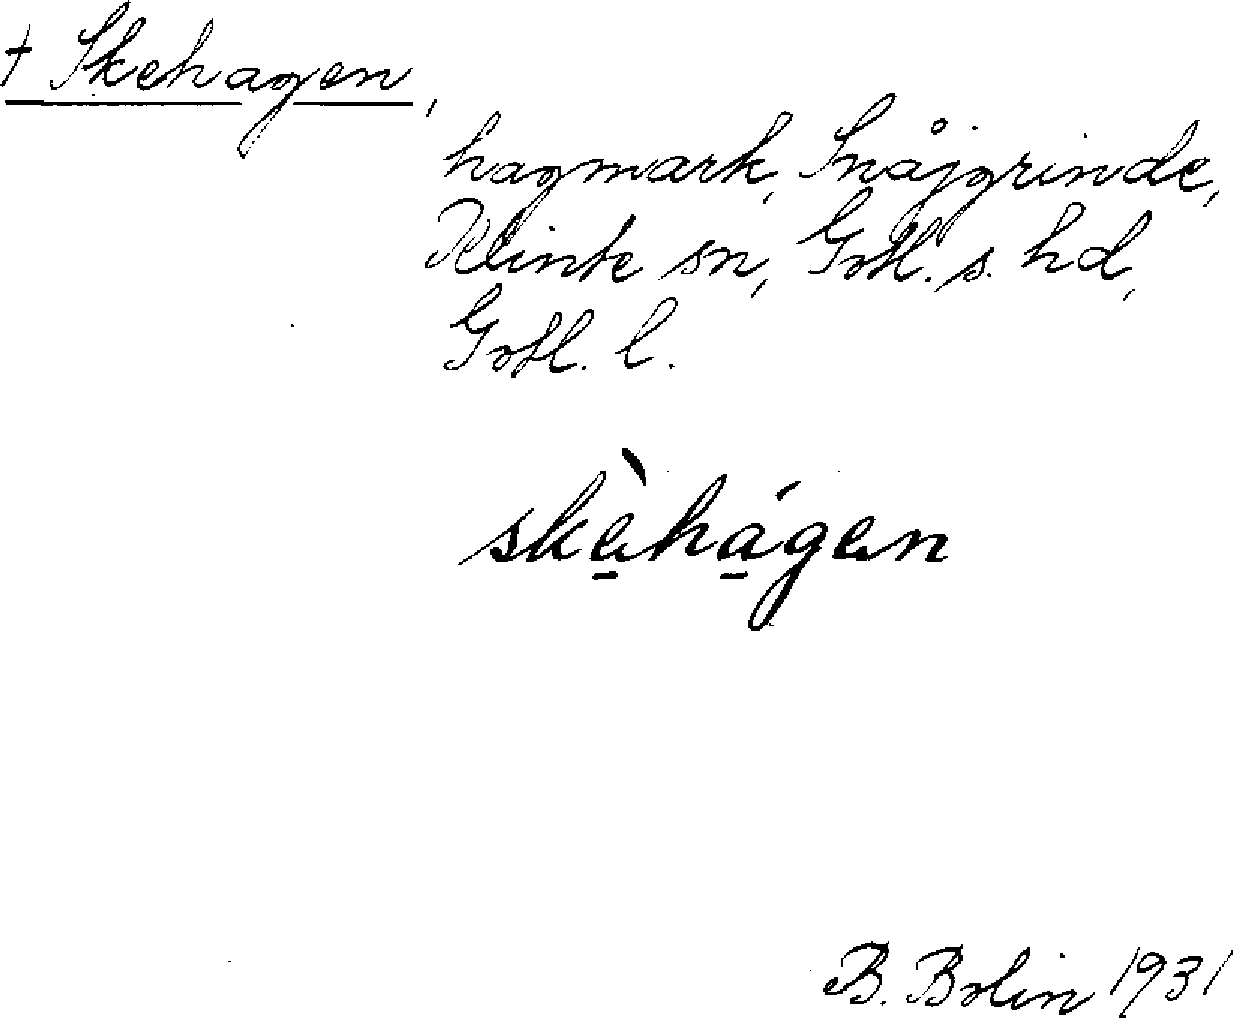 † Skehagen,
hagmark, Snåjgrinde,
Klinte sn, Gotl. s. hd,
Gotl. l.
skè̱há̱gen
B. Bolin 1931